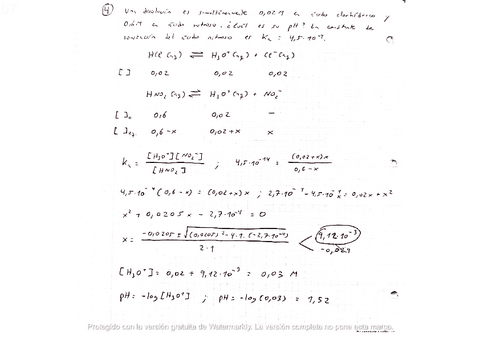 4) Una disolución es simultáneamente 0,02M en ácido clorhídrico y
0,6M en ácido nitroso. ¿Cuál es su pH? La constante de
ionización del ácido nitroso es Ka = 4,5·10⁻⁴.
HCl (aq) ⇌ H₃O⁺(aq) + Cl⁻(aq)
[ ] 0,02 0,02 0,02
HNO₂ (aq) ⇌ H₃O⁺(aq) + NO₂⁻
[ ]₀ 0,6 0,02 –
[ ]eq 0,6-x 0,02+x x
Ka = [H₃O⁺][NO₂⁻] / [HNO₂] ; 4,5·10⁻⁴ = (0,02+x)x / 0,6-x
4,5·10⁻⁴(0,6-x) = (0,02+x)x ; 2,7·10⁻⁴ - 4,5·10⁻⁴x = 0,02x + x²
x² + 0,0205x - 2,7·10⁻⁴ = 0
x = -0,0205 ± √(0,0205)² - 4·1·(-2,7·10⁻⁴) / 2·1 < 9,12·10⁻³
[H₃O⁺] = 0,02 + 9,12·10⁻³ = 0,03 M
pH = -log[H₃O⁺] ; pH = -log(0,03) = 1,52
Protegido con la versión gratuita de Watermarkly. La versión completa no pone esta marca.